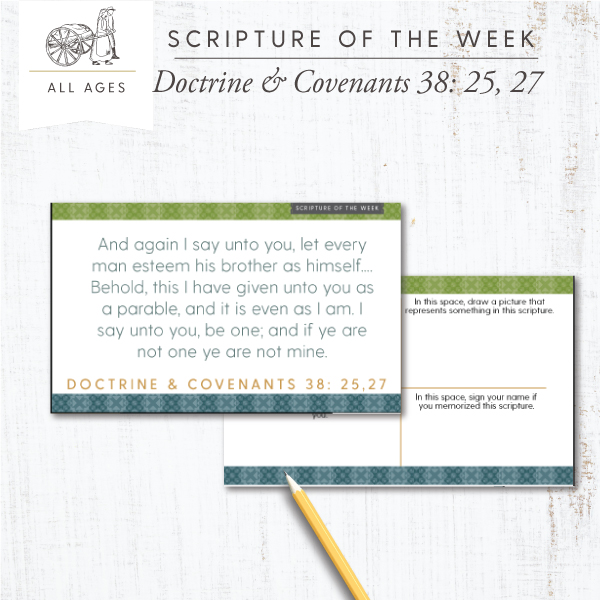 SCRIPTURE OF THE WEEK
ALL AGES
Doctrine & Covenants 38: 25, 27
SCRIPTURE OF THE WEEK
And again I say unto you, let every
man esteem his brother as himself....
Behold, this I have given unto you as
a parable, and it is even as I am. I
say unto you, be one; and if ye are
not one ye are not mine.
DOCTRINE & COVENANTS 38: 25,27
In this space, draw a picture that
represents something in this scripture.
In this space, sign your name if
you memorized this scripture.
you.